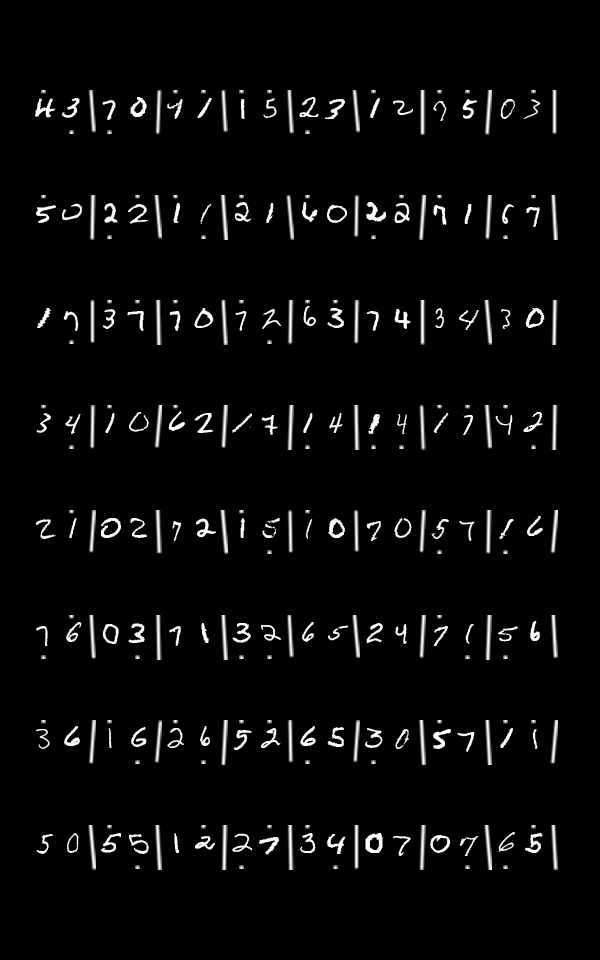 43|70|41|15|23|12|75|03|
50|22|11|21|60|22|71|67|
17|37|70|72|63|74|34|30|
34|10|62|17|14|14|17|42|
21|02|72|15|10|70|57|16|
76|03|71|32|65|24|71|56|
36|16|26|52|65|30|57|11|
50|55|12|27|34|07|07|65|